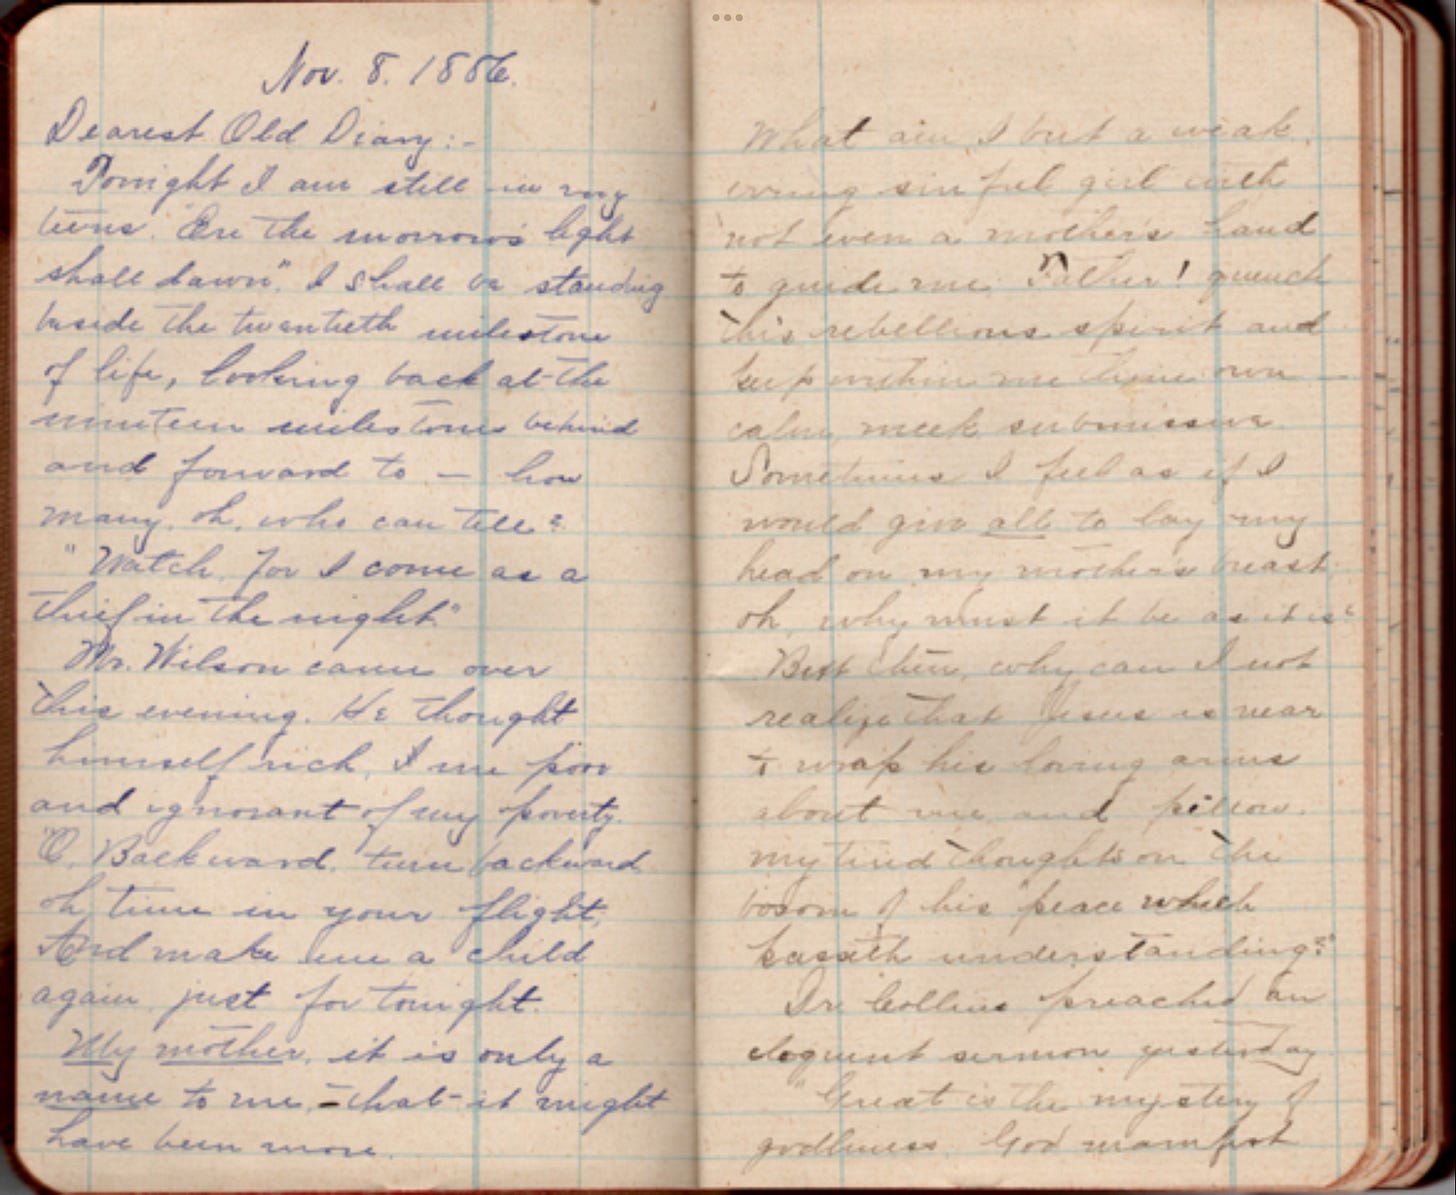 Nov. 8. 1886.
Dearest Old Diary:-
Tonight I am still in my
teens. "Ere the morrow's light
shall dawn". I shall be standing
beside the twentieth milestone
of life, looking back at the
nineteen milestones behind
and forward to — how
many, oh, who can tell?
"Watch, for I come as a
thief in the night."
Mr. Wilson came over
this evening. He thought
himself rich, I me poor
and ignorant of my poverty.
"O, Backward, turn backward
oh, time in your flight,
And make me a child
again just for tonight.
My mother, it is only a
name to me, - that it might
have been more.
What am I but a weak,
erring sinful girl with
not even a mother's hand
to guide me. Father! quench
this rebellious spirit and
keep within me thine own
calm, meek submissive.
Sometimes I feel as if I
would give all to lay my
head on my mother's breast,
oh, why must it be as it is?
But then, why can I not
realize that Jesus is near
to wrap his loving arms
about me and pillow
my tired thoughts on the
bosom of his "peace which
passeth understanding?"
Dr. Collins preached an
eloquent sermon yesterday
"Great is the mystery of
godliness. God manifest